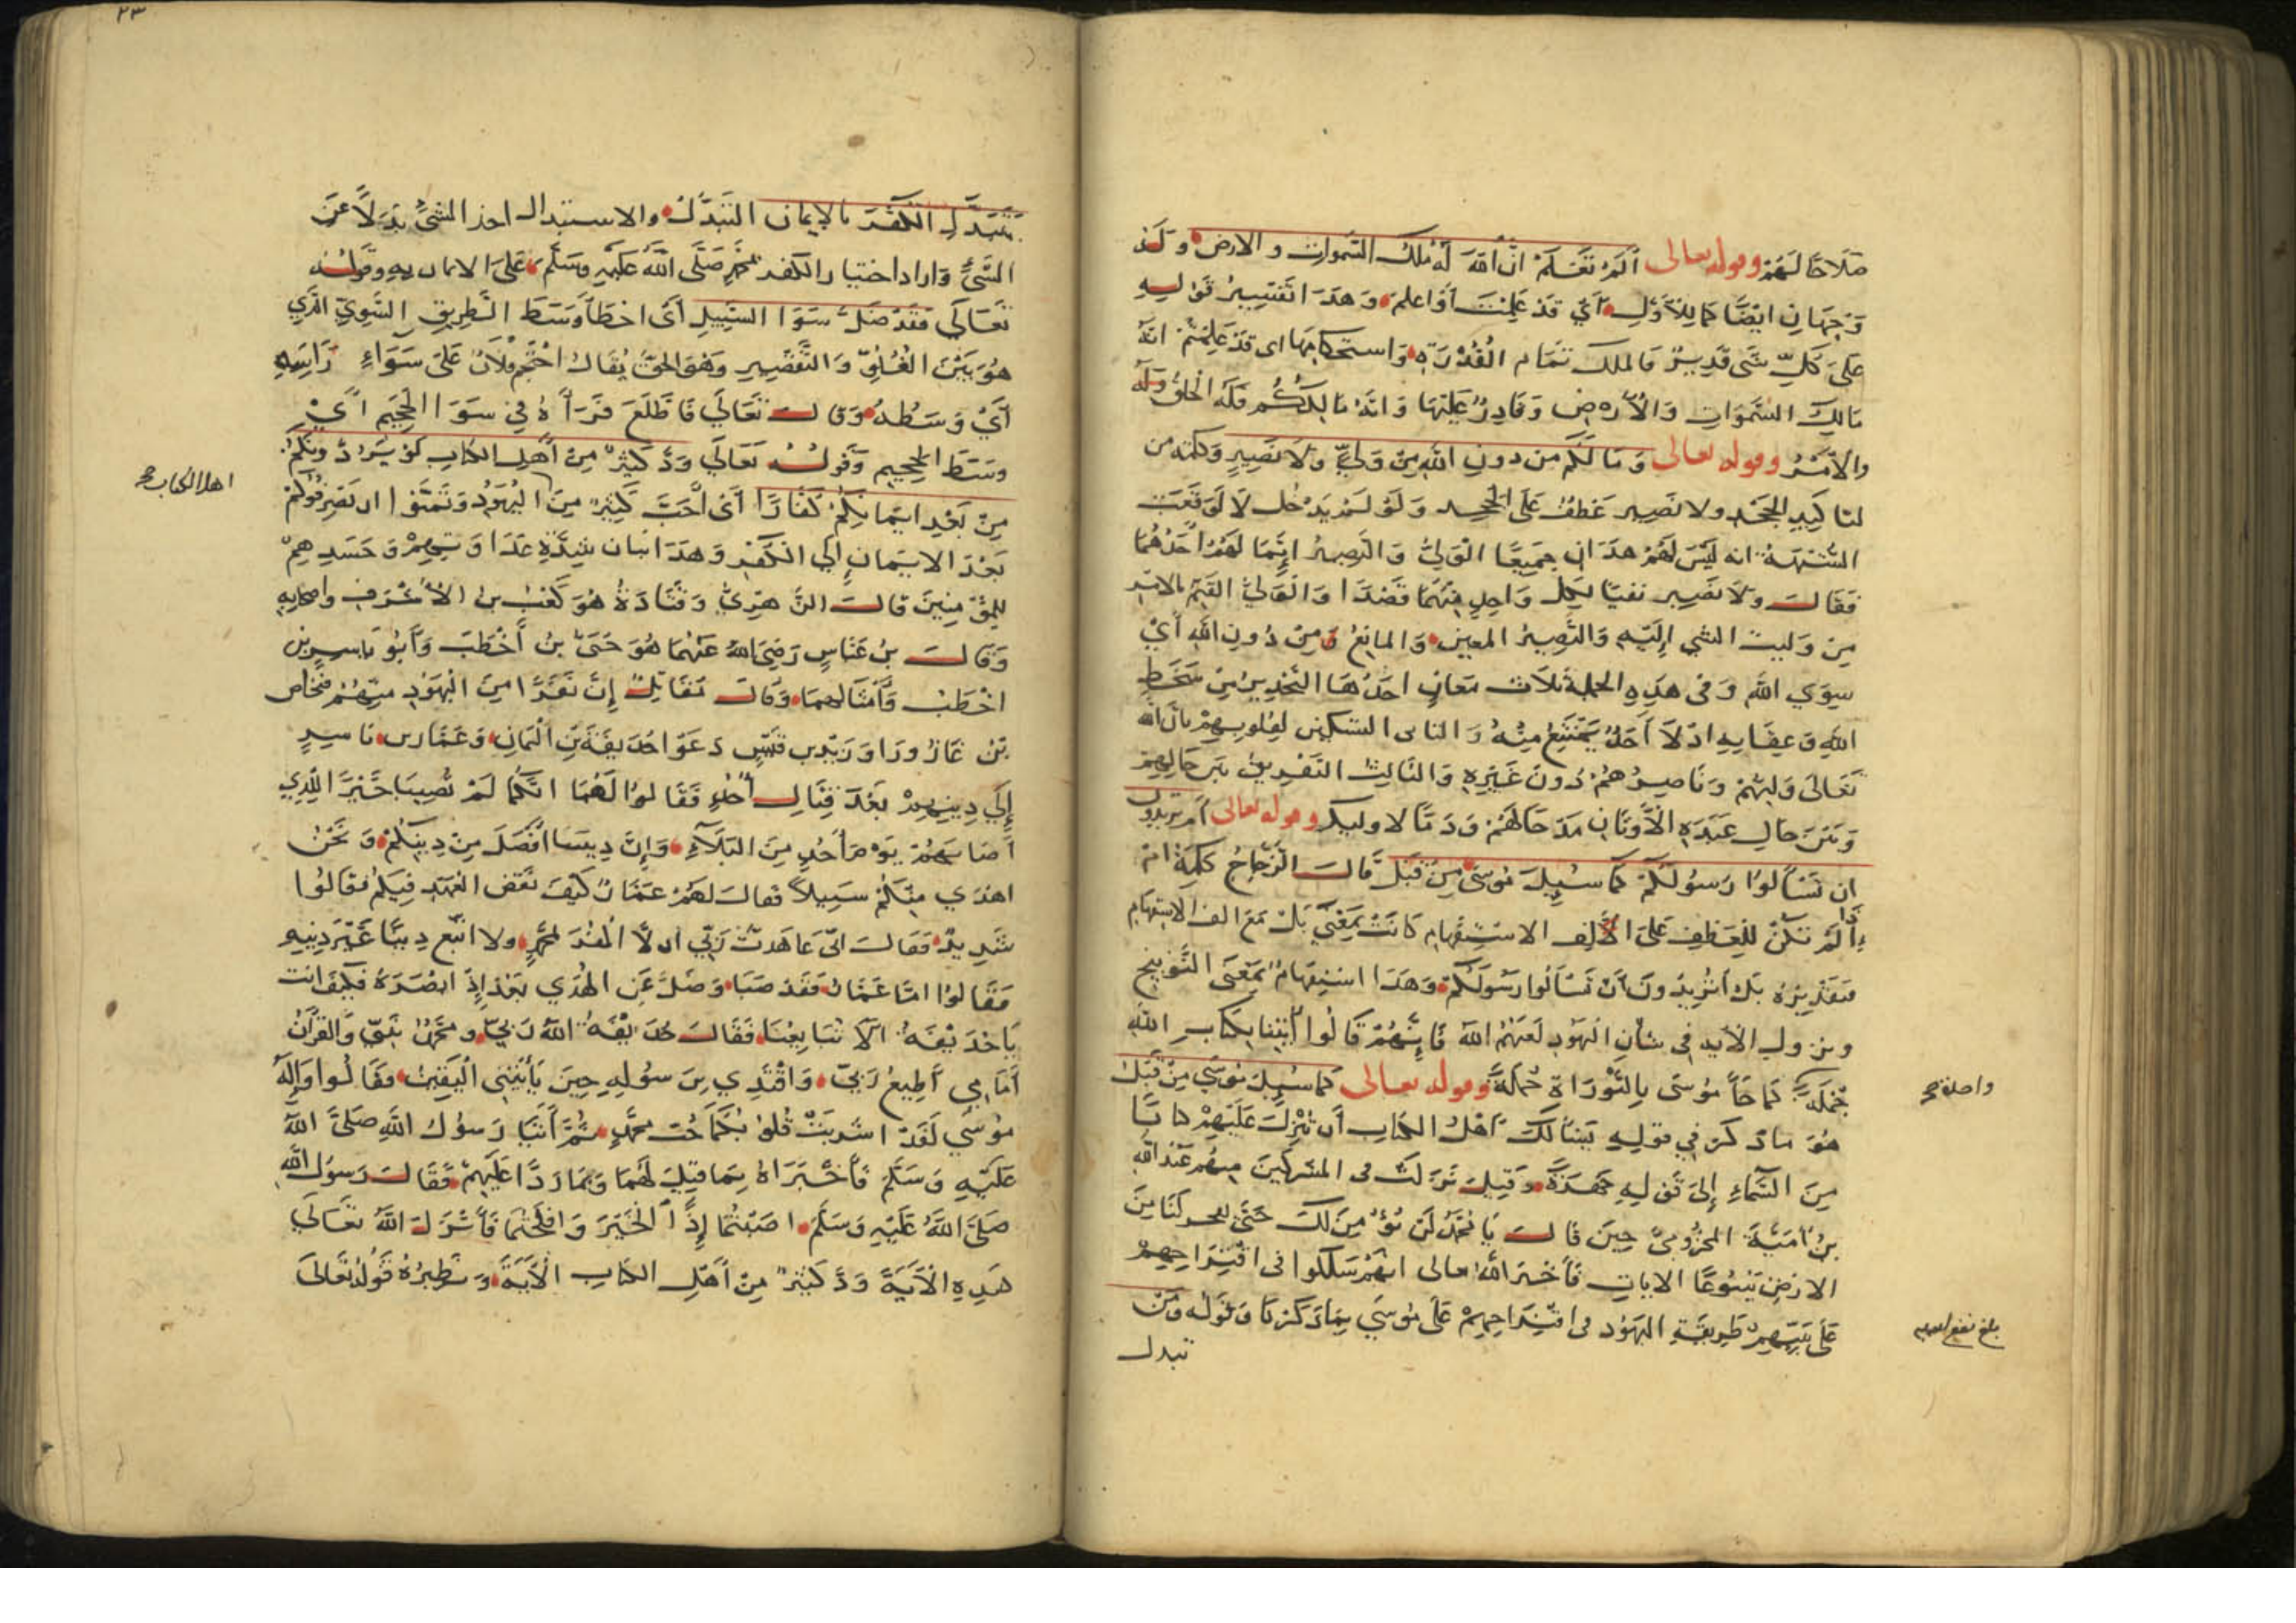 صلاحا لهم وقوله تعالى ألم تعلم ان الله له ملك السموات والارض ولذ
وجهان ايضا كما للاول اي قد علمت أو اعلم وهذا تفسير قوله
على كل شى قدير فالملك تمام القدرة واستحكامها اى قد علمتم انه
مالك السموات والأرض وقادر عليها وانه مالككم فله الخلق وله
والأمر وقوله تعالى وما لكم من دون الله من ولي ولا نصير وكلمة من
لتاكيد الجحد ولا نصير عطف على الجحد ولو لم يدخل لا لوقعت
الشبهة انه ليس لهم هذان جميعا الولي والنصير إنما لهم احدهما
فقال ولا نصير نفيا لكل واحد منهما قصدا والولي القيم بالامر
من وليت الشي إليه والنصير المعين والمانع ومن دون الله أي
سوى الله وفى هذه الجملة ثلاث معان احدها التحذير من سخط
الله وعقابه اذ لا أحد يمتنع منه والثانى التسكين لقلوبهم بان الله
تعالى وليهم وناصرهم دون غيره والثالث التفريق بين حالهم
وبين حال عبدة الأوثان مدحا لهم وذما لاوليك وقوله تعالى ام تريدون
ان تسألوا رسولكم كما سئل موسى من قبل قال الزجاج كلمة ام
إذا لم تكن للعطف على الألف الاستفهام كانت بمعنى بل مع الف الاستفهام
فتقديره بل أتريدون أن تسألوا رسولكم وهذا استفهام بمعنى التوبيخ
ونزول الآية فى شان اليهود لعنهم الله فإنهم قالوا ائتنا بكتاب الله
جملة كما جأ موسى بالتوراة جملة وقوله تعالى كما سيل موسى من قبل
واحدة صح
هو ما ذكر في قوله يسألك أهل الكتاب أن تنزل عليهم كتابا
من السماء إلى قوله جهرة وقيل نزلت فى المشركين منهم عبد الله
بن أمية المخزومي حين قال يا محمد لن نؤمن لك حتى تفجر لنا من
الارض ينبوعا الايات فأخبر الله تعالى انهم سلكوا فى اقتراحهم
على نبيهم طريقة اليهود فى اقتراحهم على موسى بما ذكرنا وقوله ومن
بلغ
تبدل
٢٣
يتبدل الكفر بالإيمان التبدل والاستبدال اخذ الشئ بدلا عن
الشئ واراد اختيار الكفر بمحمد صلى الله عليه وسلم على الايمان به وقوله
تعالى فقد ضل سوا السبيل أى اخطأ وسط الطريق السوي الذي
هو بين الغلو والتقصير وهو الحق يقال احتجم فلان على سواء رأسه
أي وسطه وقال تعالى فاطلع فرآه في سوا الجحيم أي
وسط الجحيم وقوله تعالى ود كثير من أهل الكتاب لو يردونكم
اهل الكتاب صح
من بعد ايمانكم كفارا أى أحب كثير من اليهود وتمنوا ان تصرفوكم
بعد الايمان إلى الكفر وهذا بيان شدة عداوتهم وحسدهم
للمؤمنين قال الزهري وقتادة هو كعب بن الأشرف واصحابه
وقال بن عباس رضى الله عنهما هو حيي بن أخطب وأبو ياسر بن
اخطب وأمثالهما وقال مقاتل إن نفرا من اليهود منهم فنخاص
بن عازورا وزيد بن قيس دعوا حذيفة بن اليمان وعمار بن ياسر
إلى دينهم بعد قتال أحد فقالوا لهما انكما لم تصيبا خيرا للذي
أصابهم يوم أحد من البلاء وإن ديننا أفضل من دينكم ونحن
اهدي منكم سبيلا فقال لهم عمار كيف نقض العهد فيكم فقالوا
شديد فقال انى عاهدت ربي ان لا اكفر بمحمد ولا اتبع دينا غير دينه
فقالوا اما عمار فقد صبا وضل عن الهدي بعد إذ ابصره فكيف انت
يا حذيفة ألا تتابعنا فقال حذيفة الله ربي ومحمد نبي والقرآن
أمامي أطيع ربي واقتدي برسوله حين يأتيني اليقين فقالوا وإله
موسي لقد اشربت قلوبكما حب محمد ثم أتيا رسول الله صلى الله
عليه وسلم فأخبراه بما قيل لهما وبما ردا عليهم فقال رسول الله
صلى الله عليه وسلم اصبتما إذا الخير وافلحتما فأنزل الله تعالى
هذه الآية ود كثير من أهل الكتاب الآية ونظيره قوله تعالى